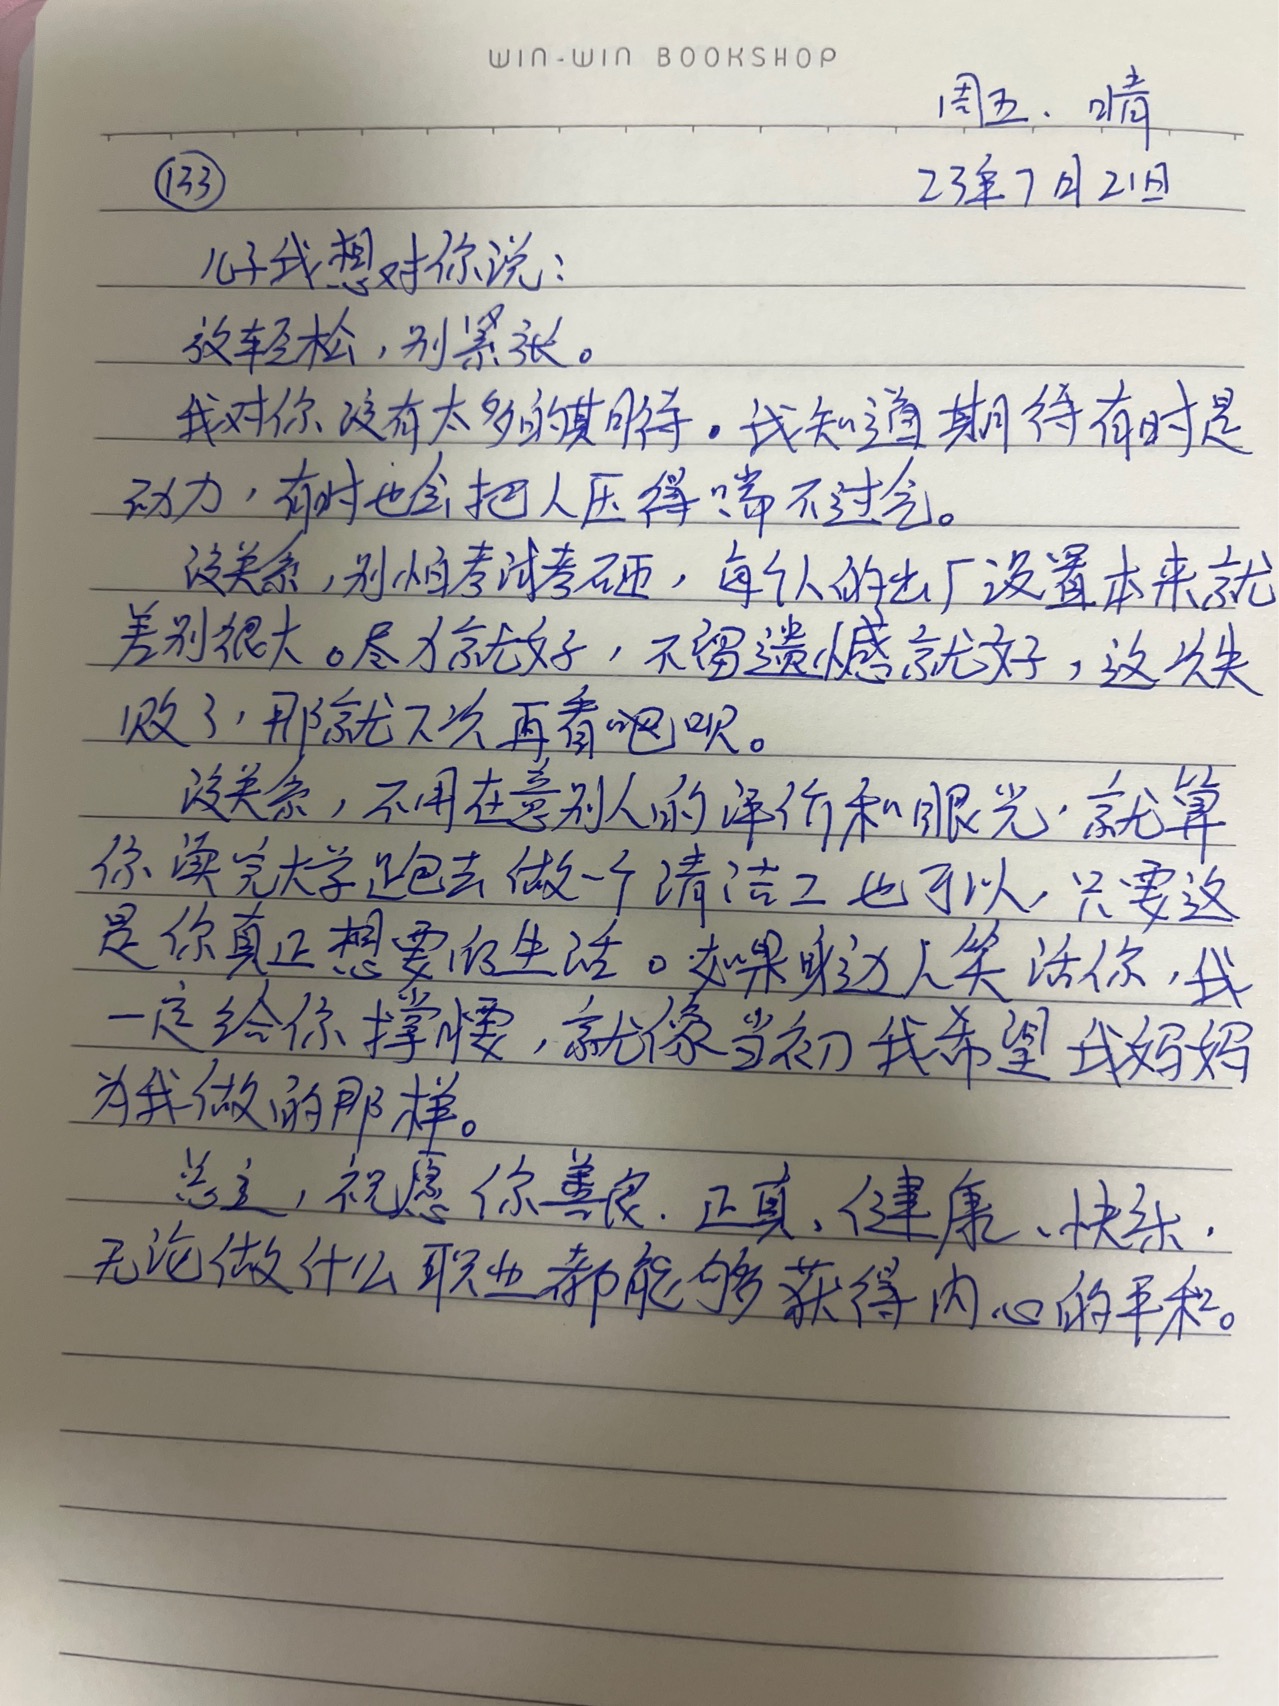 WIN-WIN BOOKSHOP
周五、晴
133
23年7月21日
儿子我想对你说：
放轻松，别紧张。
我对你没有太多的期待。我知道期待有时是
动力，有时也会把人压得喘不过气。
没关系，别怕考试考砸，每个人的出厂设置本来就
差别很大。尽力就好，不留遗憾就好，这次失
败了，那就下次再看吧呗。
没关系，不用在意别人的评价和眼光，就算
你读完大学跑去做一个清洁工也可以，只要这
是你真正想要的生活。如果身边人笑话你，我
一定给你撑腰，就像当初我希望我妈妈
为我做的那样。
总之，祝愿你善良、正真、健康、快乐，
无论做什么职业都能够获得内心的平和。